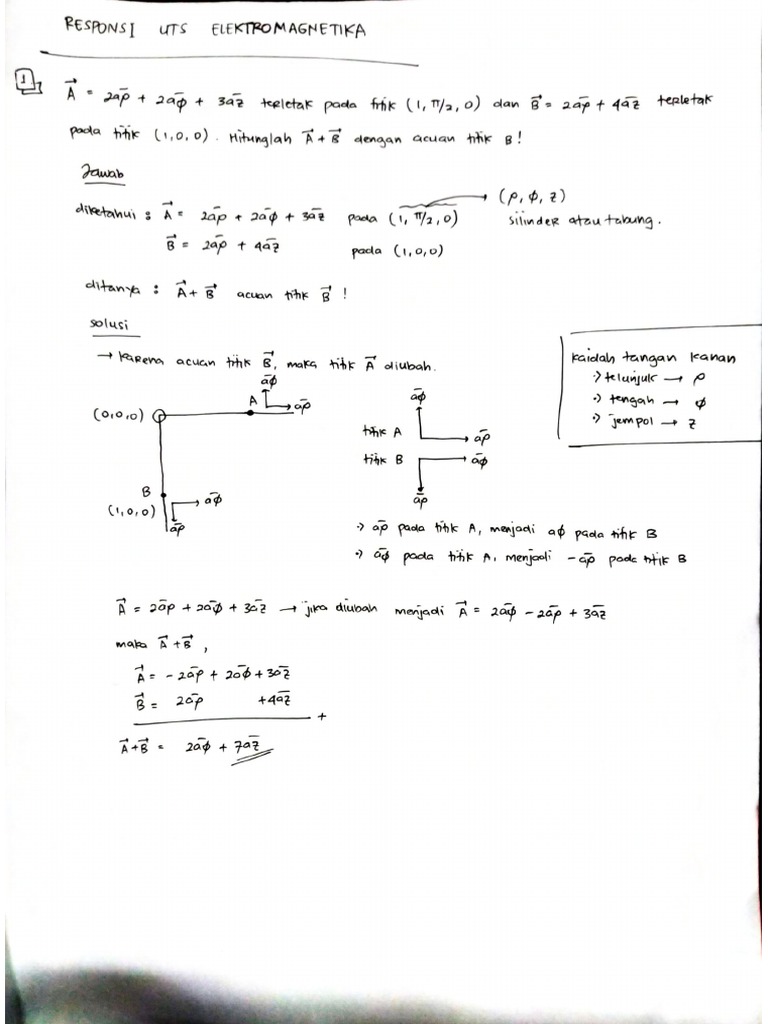 RESPONSI UTS ELEKTROMAGNETIKA
1 A⃗ = 2aρ̄ + 2aϕ̄ + 3az̄ terletak pada titik (1, π/2, 0) dan B⃗ = 2aρ̄ + 4az̄ terletak
pada titik (1,0,0). Hitunglah A⃗ + B⃗ dengan acuan titik B!
Jawab
diketahui : A⃗ = 2aρ̄ + 2aϕ̄ + 3az̄ pada (1, π/2, 0) → (ρ, ϕ, z)
silinder atau tabung.
B⃗ = 2aρ̄ + 4az̄ pada (1,0,0)
ditanya : A⃗ + B⃗ acuan titik B⃗ !
solusi
→ karena acuan titik B⃗, maka titik A⃗ diubah.
kaidah tangan kanan
·> telunjuk → ρ
·> tengah → ϕ
·> jempol → z
(0,0,0)
A
aϕ̄
aρ̄
B
(1,0,0)
aϕ̄
aρ̄
aϕ̄
titik A
aρ̄
titik B
aϕ̄
aρ̄
·> aρ̄ pada titik A, menjadi aϕ pada titik B
·> aϕ̄ pada titik A, menjadi -aρ̄ pada titik B
A⃗ = 2aρ̄ + 2aϕ̄ + 3az̄ → jika diubah menjadi A⃗ = 2aϕ̄ - 2aρ̄ + 3az̄
maka A⃗+B⃗,
A⃗ = -2aρ̄ + 2aϕ̄ + 3az̄
B⃗ = 2aρ̄ +4az̄
+
A⃗+B⃗ = 2aϕ̄ + 7az̄